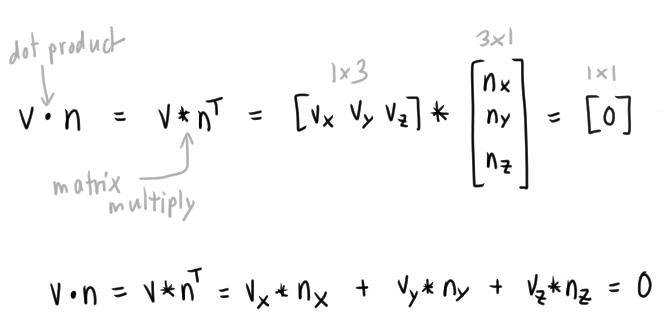 dot product
1x3
3x1
1x1
v · n = v * n^T = [v_x v_y v_z] * [n_x n_y n_z] = [0]
matrix
multiply
v · n = v * n^T = v_x * n_x + v_y * n_y + v_z * n_z = 0